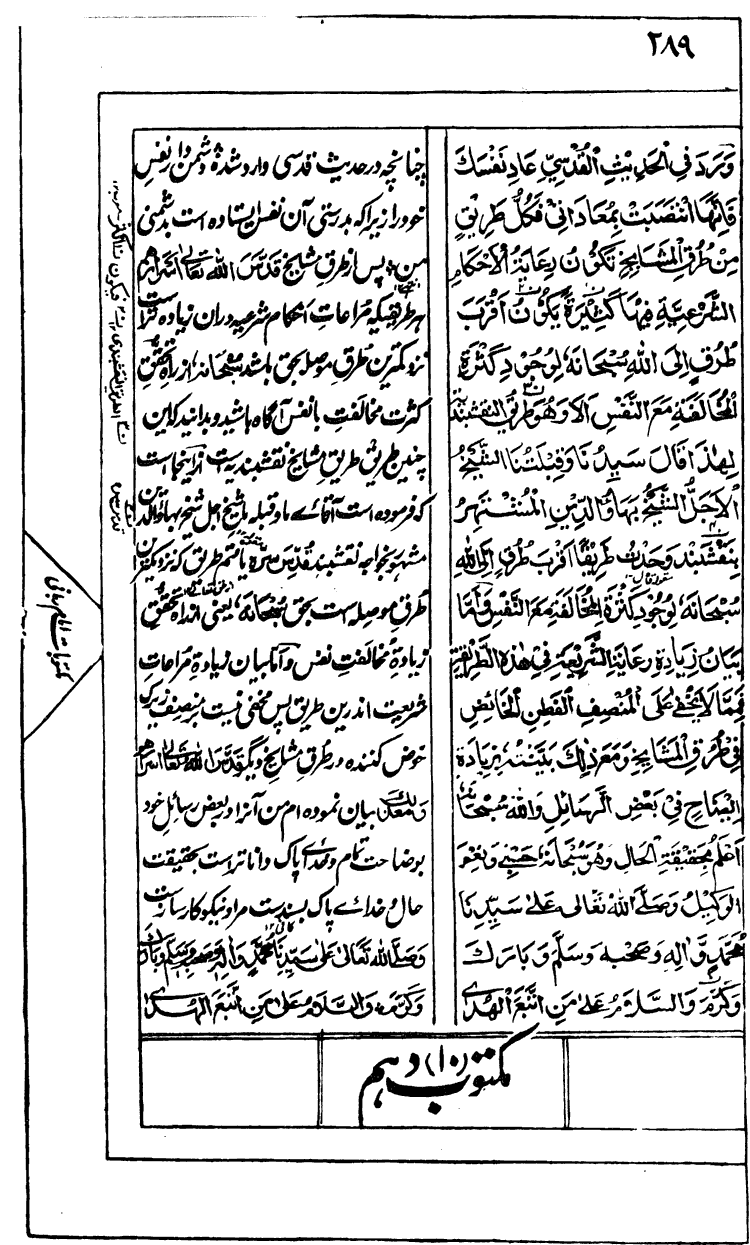 ۲۸۹
وَرَدَ فِي الْحَدِيْثِ الْقُدْسِيِّ عَادِ نَفْسَكَ
فَاِنَّهَا انْتَصَبَتْ بِمُعَادَاتِيْ فَكُلُّ طَرِيْقٍ
مِنْ طُرُقِ الْمَشَايِخِ تَكُوْنُ رِعَايَةُ الْاَحْكَامِ
الشَّرْعِيَّةِ فِيْهَا كَثِيْرَةً يَكُوْنُ اَقْرَبَ
طُرُقٍ اِلَى اللهِ سُبْحَانَهٗ لِوُجُوْدِ كَثْرَةِ
الْمُخَالَفَةِ مَعَ النَّفْسِ اَلَا وَهُوَ طَرِيْقُ النَّقْشَبَنْدِيَّةِ
لِهٰذَا قَالَ سَيِّدُنَا وَقِبْلَتُنَا الشَّيْخُ
الْاَجَلُّ الشَّيْخُ بَهَاؤُ الدِّيْنِ الْمُشْتَهَرُ
بِنَقْشَبَنْدَ وَجَدْتُ طَرِيْقًا اَقْرَبَ طُرُقٍ اِلَى اللهِ
سُبْحَانَهٗ لِوُجُوْدِ كَثْرَةِ الْمُخَالَفَةِ مَعَ النَّفْسِ وَاَمَّا
بَيَانُ زِيَادَةِ رِعَايَةِ الشَّرِيْعَةِ فِيْ هٰذِهِ الطَّرِيْقَةِ
فَمِمَّا لَا يَخْفٰى عَلَى الْمُنْصِفِ الْفَطِنِ الْخَائِضِ
فِيْ طُرُقِ الْمَشَايِخِ وَمَعَ ذٰلِكَ بَيَّنْتُهٗ بِزِيَادَةِ
اِيْضَاحٍ فِيْ بَعْضِ الرَّسَائِلِ وَاللهُ سُبْحَانَهٗ
اَعْلَمُ بِحَقِيْقَةِ الْحَالِ وَهُوَ سُبْحَانَهٗ حَسْبِيْ وَنِعْمَ
الْوَكِيْلُ وَصَلَّى اللهُ تَعَالٰى عَلٰى سَيِّدِنَا
مُحَمَّدٍ وَّاٰلِهٖ وَصَحْبِهٖ وَسَلَّمَ وَبَارَكَ
وَكَرَّمَ وَالسَّلَامُ عَلٰى مَنِ اتَّبَعَ الْهُدٰى
چنانچہ در حدیث قدسی وارد شدہ دشمن دار نفس
خود را زیرا کہ بدرستی آن نفس ایستادہ است بدشمنی
من پس از طرق مشایخ قَدَّسَ اللہ تعالیٰ اَسْرَارَهُمْ
ہر طریقیکہ مُراعاتِ احکام شرعیہ دران زیادہ تر است
نزدیکترین طُرق موصلہ بحق باشد سُبْحَانَہٗ از راہِ تحققِ
کثرتِ مخالفت با نفس آگاہ باشید و بدانید کہ این
چنین طریق طریقِ مشایخ نقشبندیہ است ازینجا است
کہ فرمودہ است آقائے ما و قبلہ ما شیخ اجل شیخ بہاؤالدین
مشہور بخواجہ نقشبند قُدِّسَ سِرُّہٗ یافتم طریق کہ نزدیکترین
طرق موصلہ است بحق سُبْحَانَہٗ، یعنی از راہ تحققِ
زیادۃِ مخالفتِ نفس و اما بیان زیادۃِ مراعاتِ
شریعت اندرین طریق پس مخفی نیست بر منصف زیرک
خوض کنندہ در طرقِ مشایخ دیگر قَدَّسَ اللہ تعالیٰ اسرارہم
و مع ذلک بیان نمودہ ام من آنرا در بعض رسائل خود
بوضاحت تام و خدائے پاک دانا تر است بحقیقت
حال و خدائے پاک بسندست مرا و نیکو کارساز است
وَصَلَّى اللہ تَعَالیٰ عَلیٰ سَیِّدِنَا مُحَمَّدٍ وَّاٰلِهٖ وَصَحْبِهٖ وَسَلَّمَ وَبَارَكَ
وَكَرَّمَ وَالسَّلَامُ عَلٰى مَنِ اتَّبَعَ الْهُدٰى
مکتوبات امام ربانی
مکتوب (۱۰) دہم